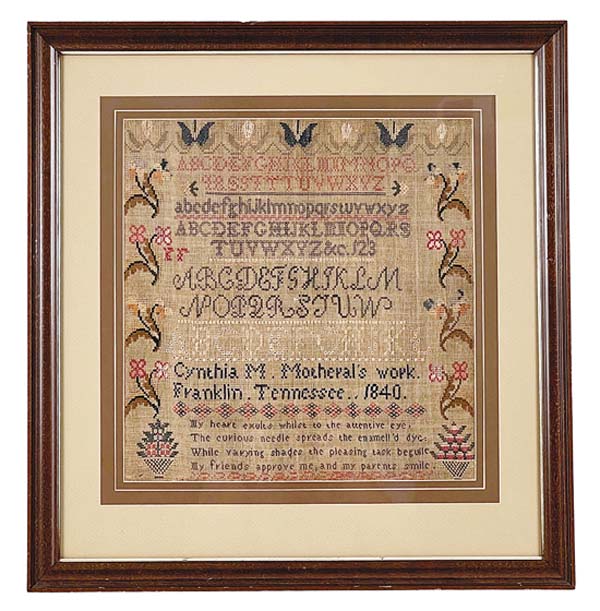 ABCDEFGHIJKLMNOPQ
RSSTTUVWXYZ
abcdefghijklmnopqrstuvwxyz
ABCDEFGHIJKLMNOPQRS
TUVWXYZ&c.123
ABCDEFGHIKLM
NOPQRSTUW
Cynthia M. Motheral's work.
Franklin. Tennessee.. 1840.
My heart exults whilst to the attentive eye,
The curious needle spreads the enamell'd dye.
While varying shades the pleasing task beguile
My friends approve me, and my parents smile.